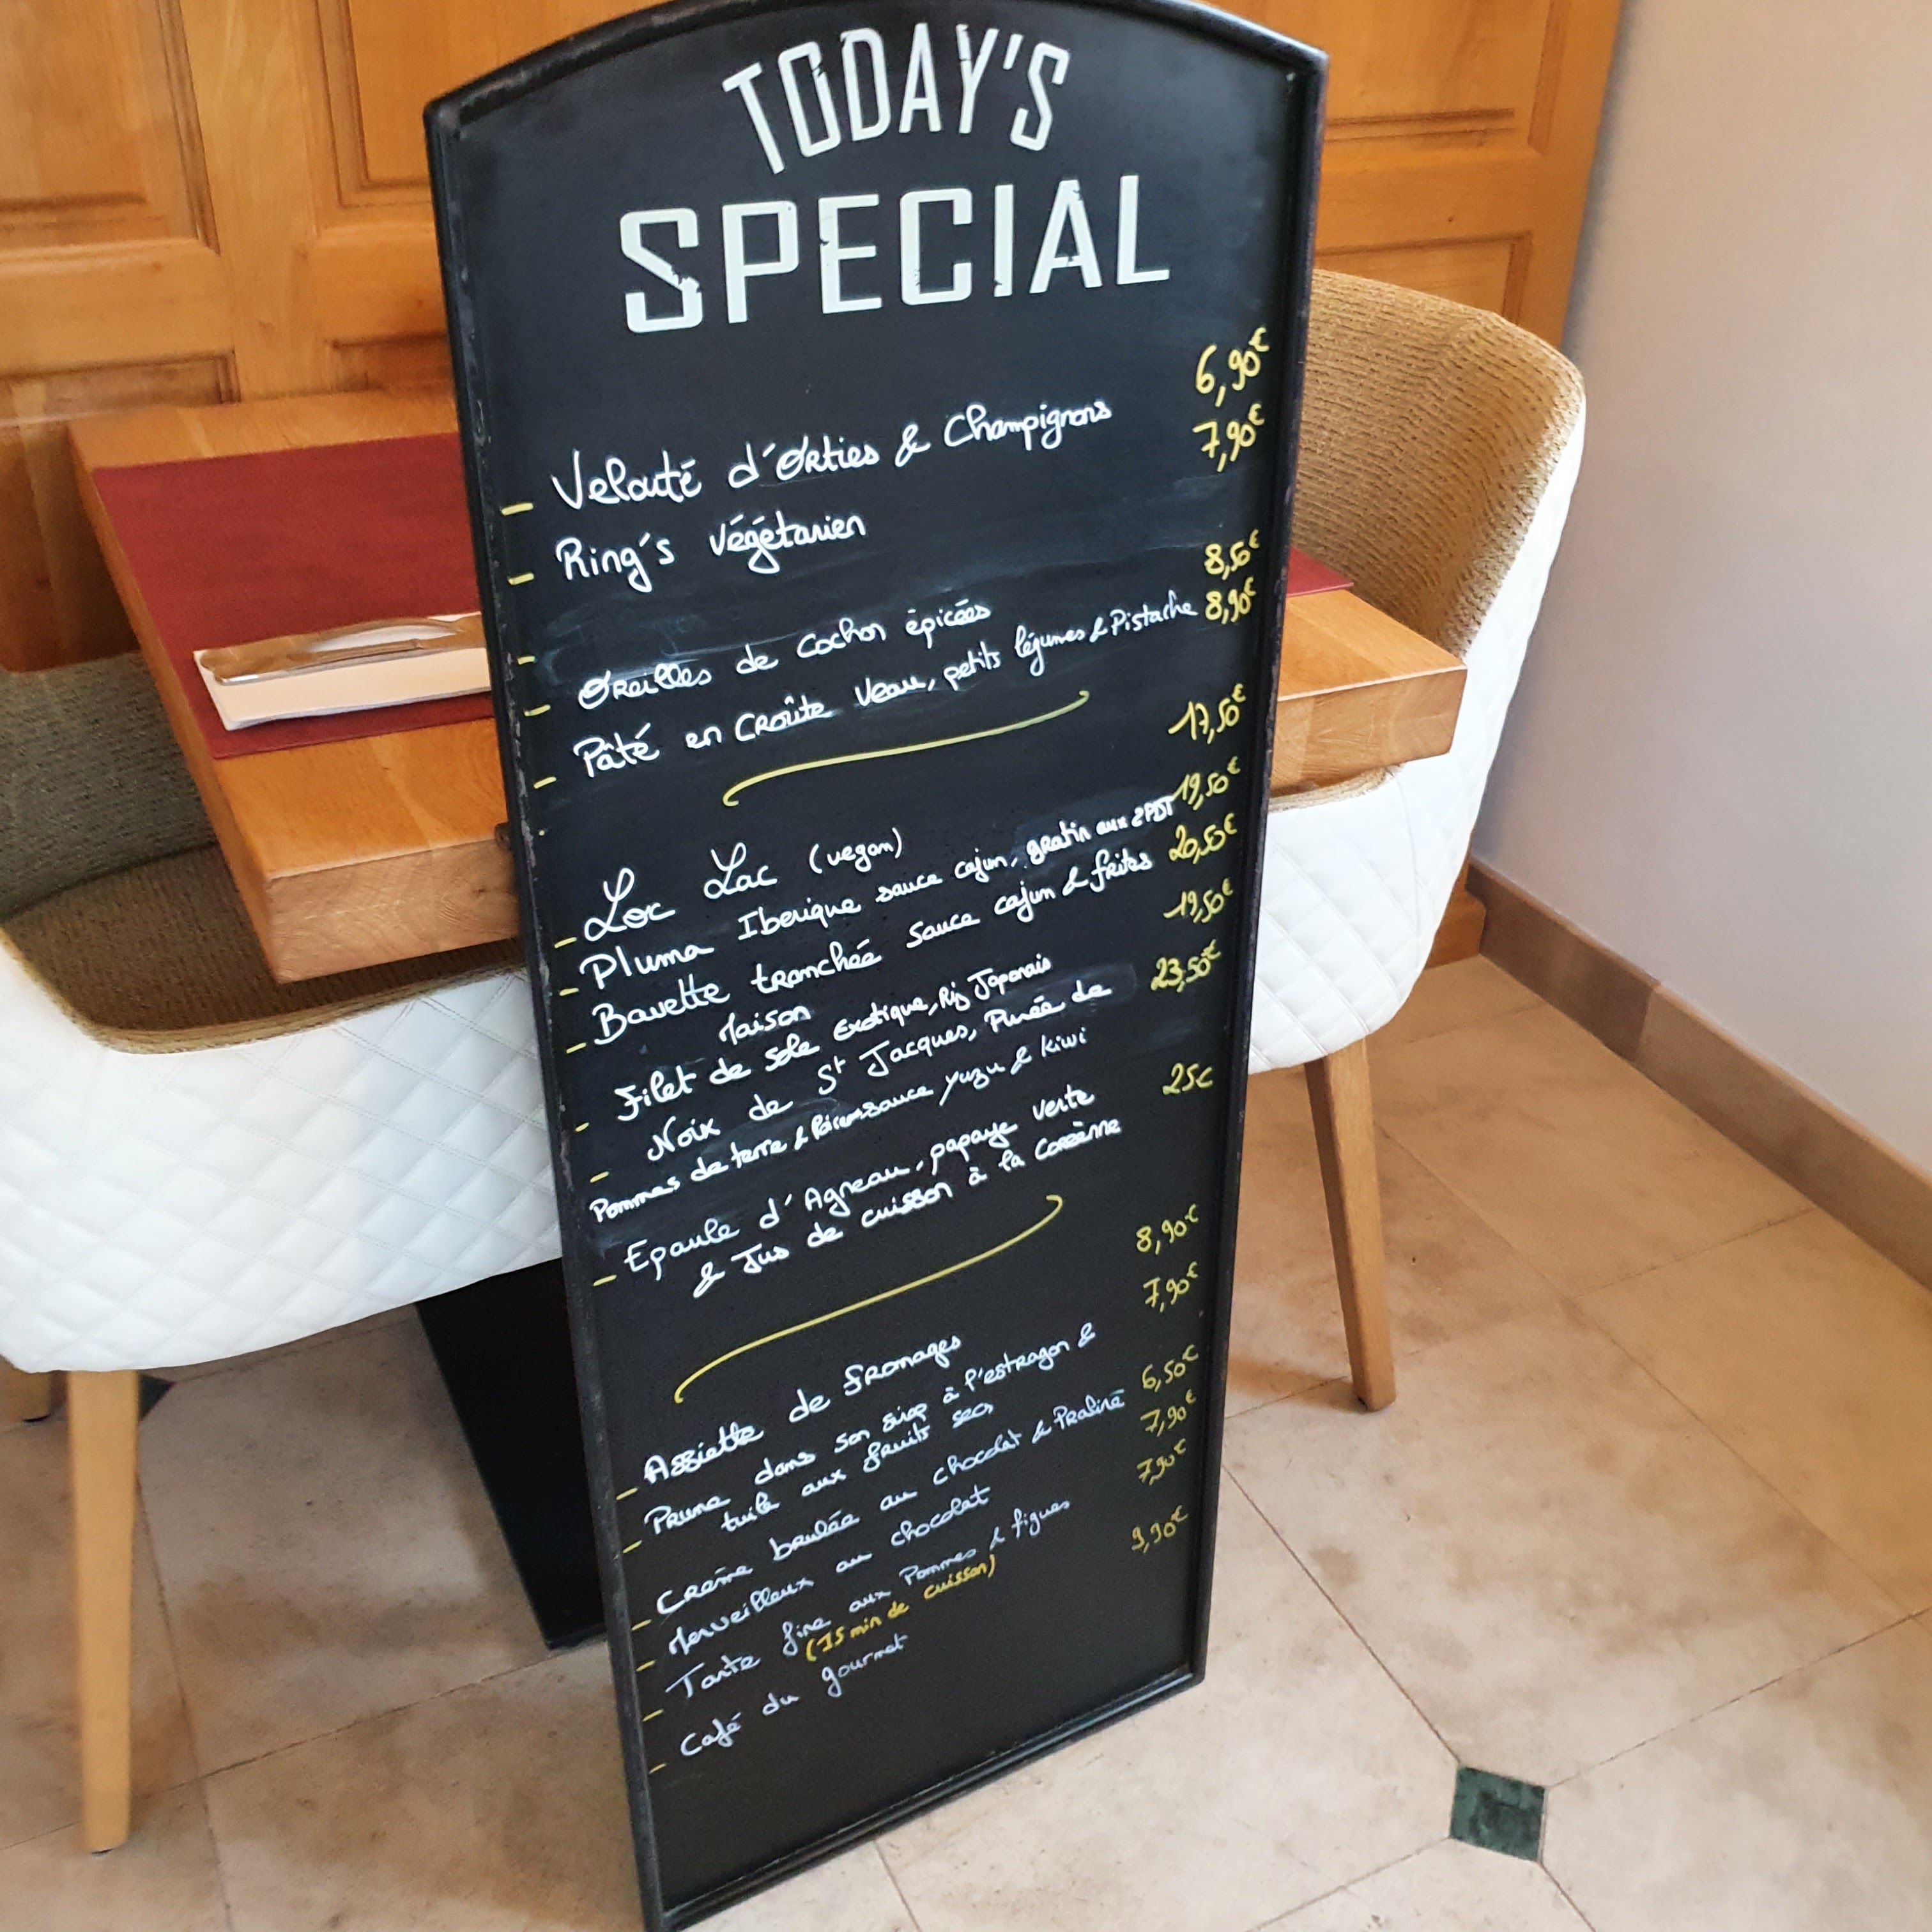 TODAY'S
SPECIAL
- Velouté d'Orties & Champignons 6,90€
- Ring's végétarien 7,90€
- Oreilles de Cochon épicées 8,50€
- Pâté en Croûte Veau, petits légumes & Pistache 8,90€
- Loc Lac (vegan) 17,50€
- Pluma Iberique sauce cajun, gratin aux 2 PDT 19,50€
- Bavette tranchée sauce cajun & frites 20,50€
Maison
- Filet de Sole Exotique, Riz Japonais 19,50€
- Noix de St Jacques, Purée de 23,50€
Pommes de terre & Poireaux sauce yuzu & kiwi
- Epaule d'Agneau, papaye verte 25€
& Jus de cuisson à la Coréenne
- Assiette de fromages 8,90€
- Prune dans son sirop à l'estragon & 7,90€
tuile aux fruits secs
- Crème brulée au chocolat & Praliné 6,50€
- Merveilleux au chocolat 7,90€
- Tarte fine aux Pommes & figues 7,90€
(15 min de cuisson)
- Café du gourmet 9,90€